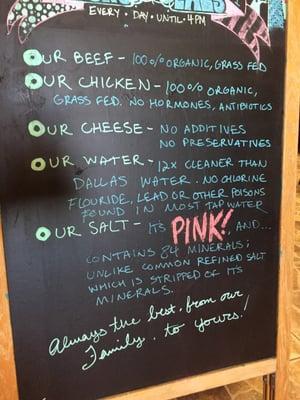 EVERY • DAY • UNTIL • 4PM
OUR BEEF - 100% ORGANIC, GRASS FED
OUR CHICKEN - 100% ORGANIC,
GRASS FED. NO HORMONES, ANTIBIOTICS
OUR CHEESE - NO ADDITIVES
NO PRESERVATIVES
OUR WATER - 12X CLEANER THAN
DALLAS WATER. NO CHLORINE
FLOURIDE, LEAD OR OTHER POISONS
FOUND IN MOST TAP WATER
OUR SALT - ITS PINK! AND...
CONTAINS 84 MINERALS;
UNLIKE COMMON REFINED SALT
WHICH IS STRIPPED OF ITS
MINERALS.
Always the best, from our
Family, to yours!